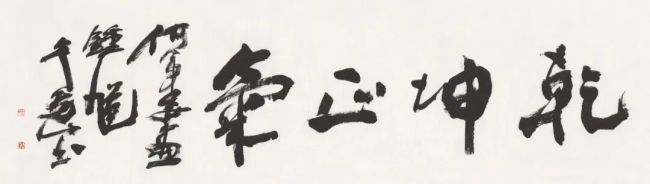 乾坤正氣
何家英畫
鍾馗